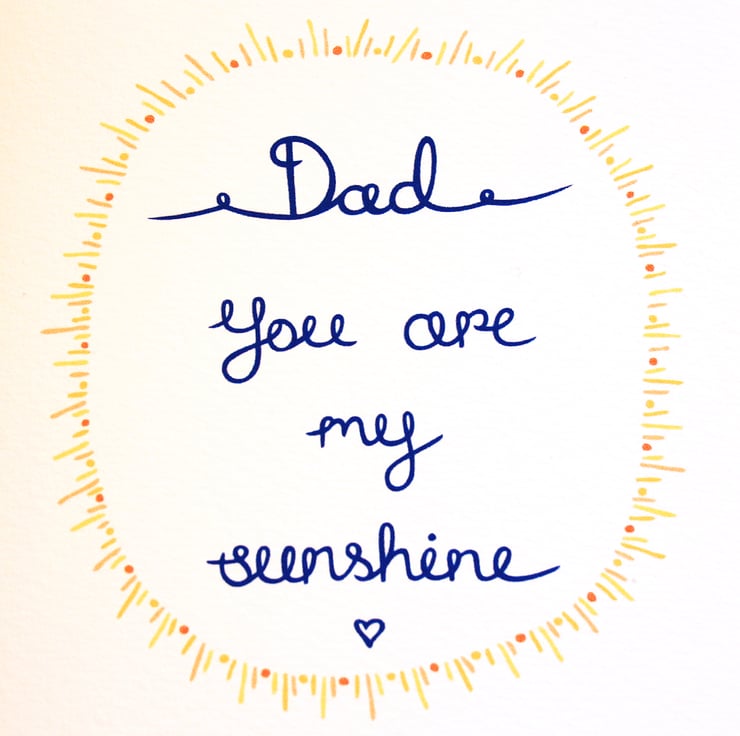 Dad
You are
my
sunshine